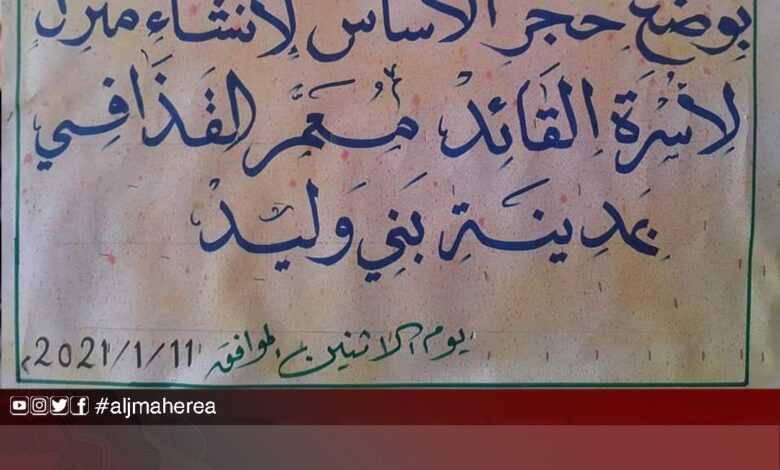 بوضع حجر الأساس لإنشاء منزل
لِأُسْرَةِ القَائِدْ مُعَمَّر القَذَّافِي
بمَدِينَةِ بَنِي وَلِيدْ
يوم الاثنين الموافق 2021/1/11م
#aljmaherea